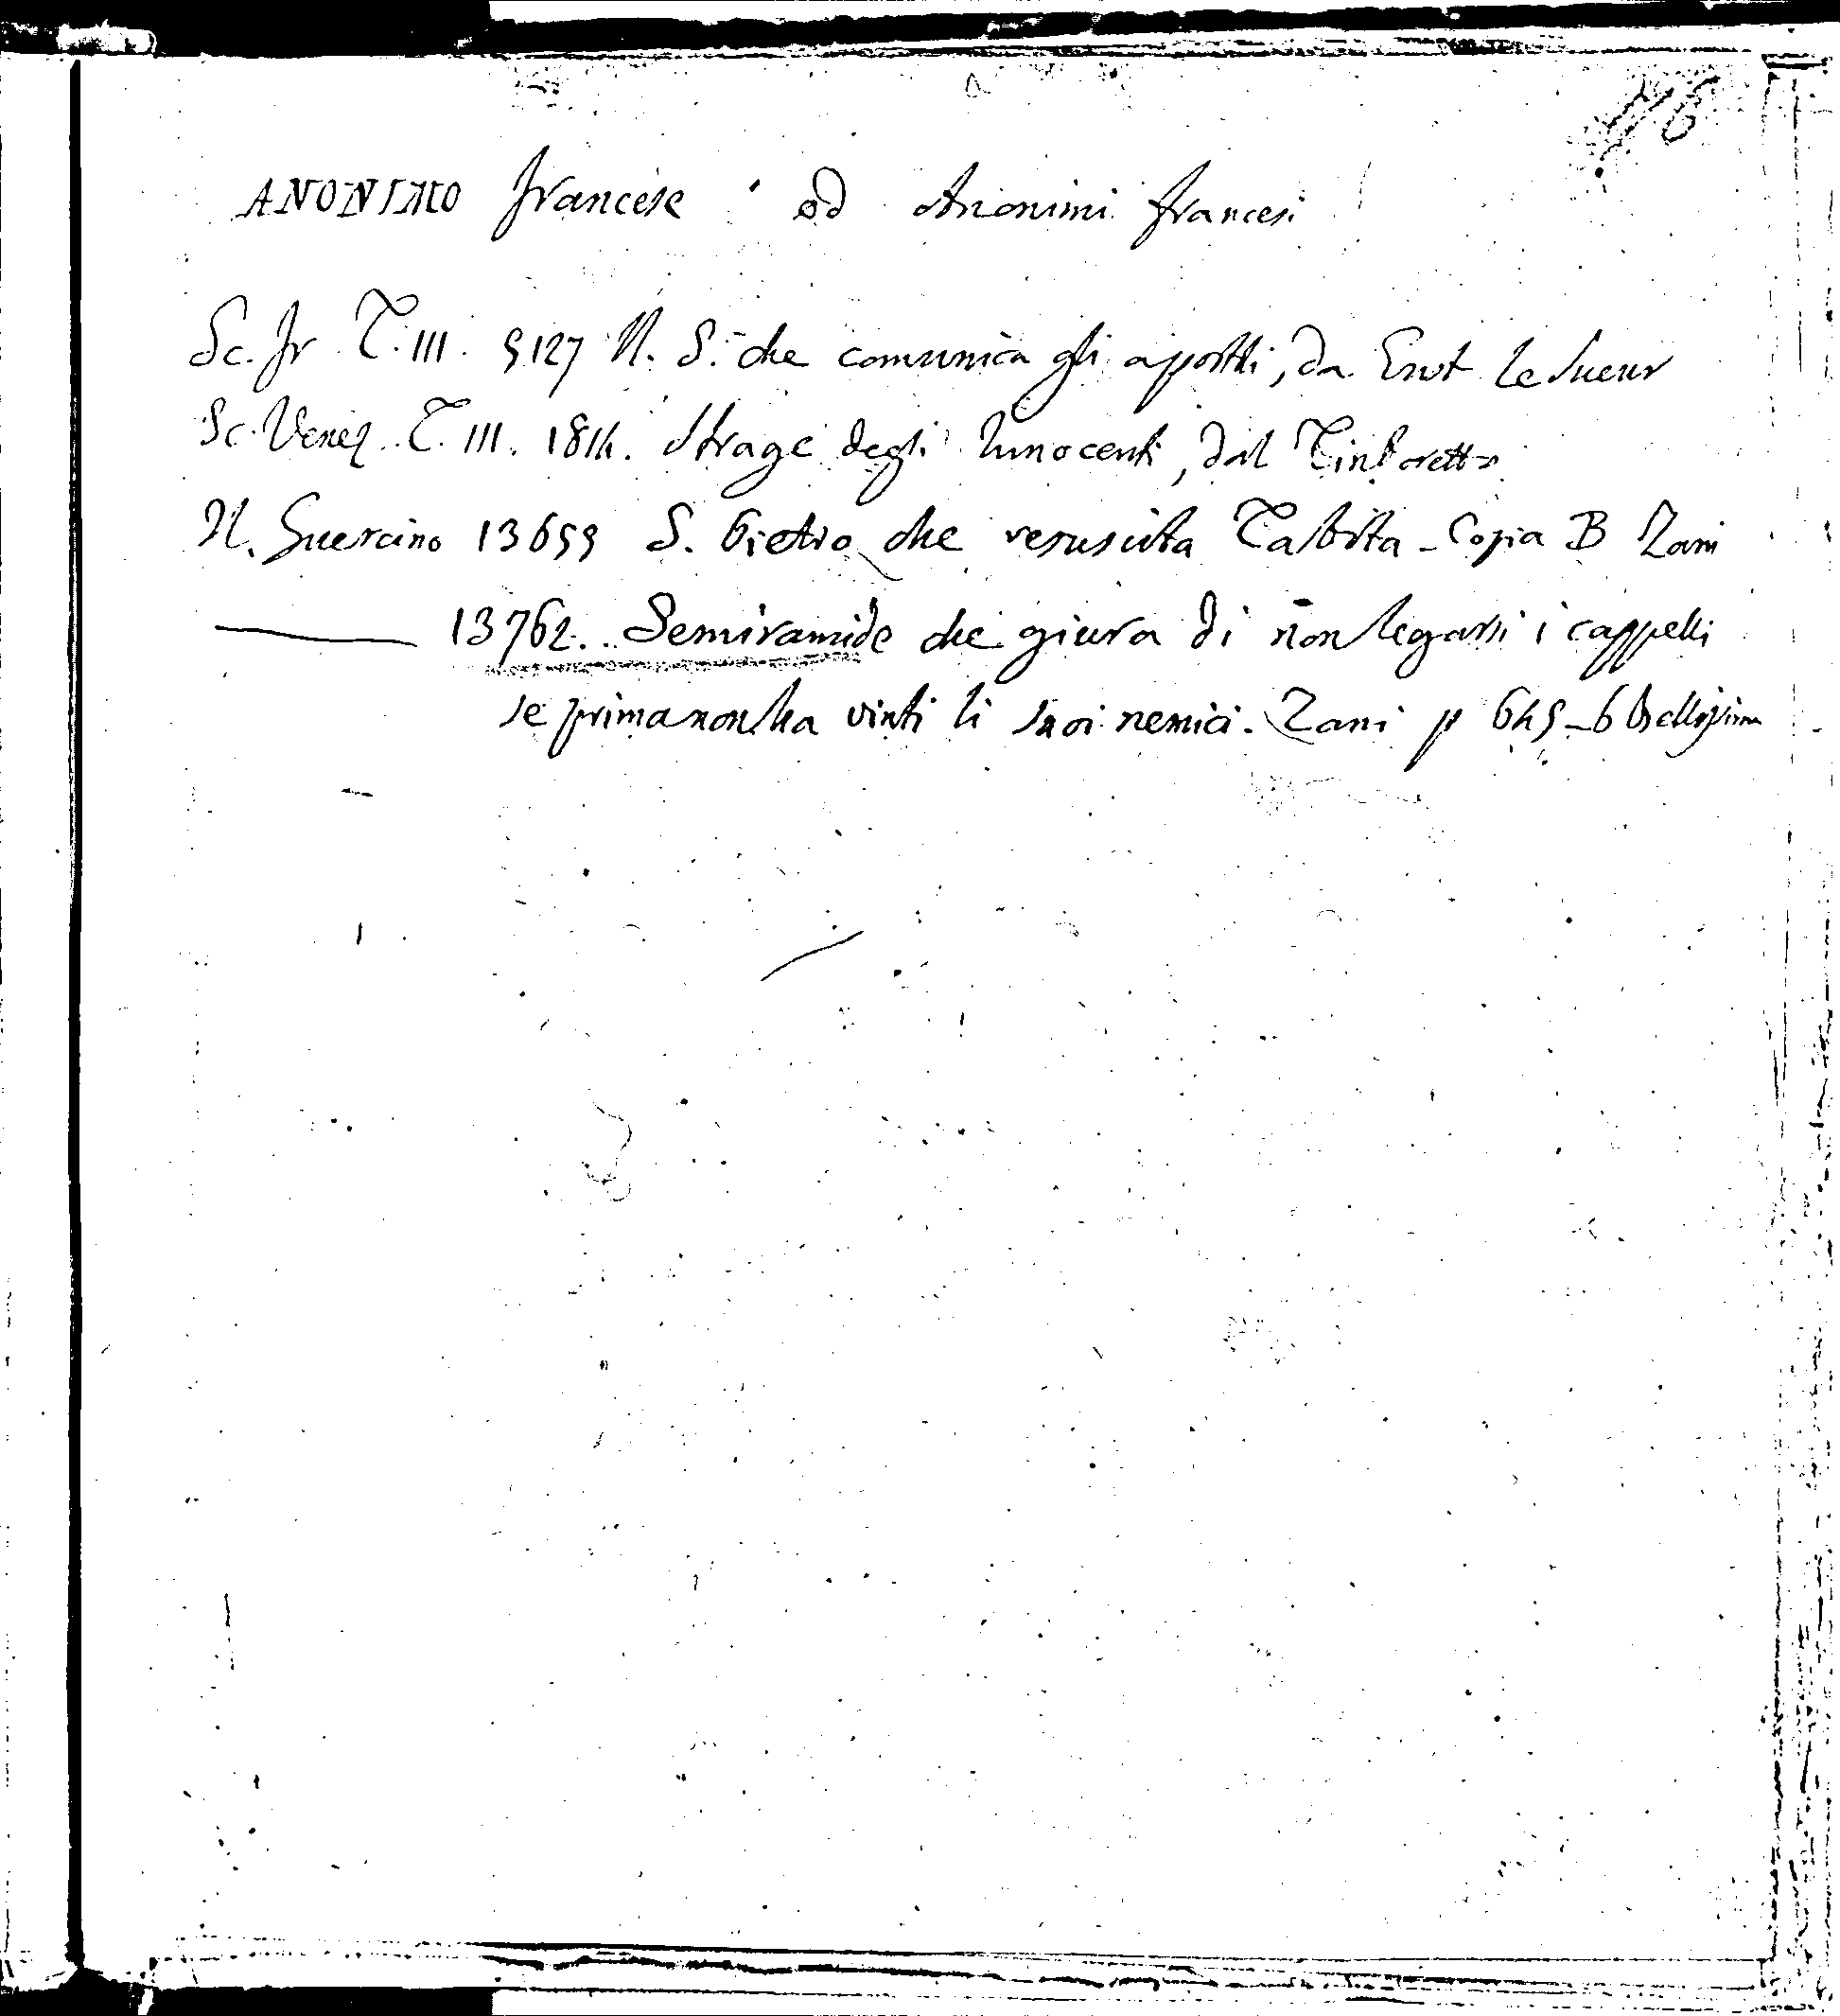 ANONIMO francese od Anonimi francesi
Sc. fr T. III. 9127 N. S. che comunica gli apostoli, da Eust Le Sueur
Sc. Venez. T. III. 1814. Strage degli Innocenti, dal Tintoretto
N. Guercino 13659 S. Pietro che resuscita Tabita - Copia B Zani
13762. Semiramide che giura di non legarsi i cappelli
se prima non ha vinti li suoi nemici. Zani p 645-6 bellissima